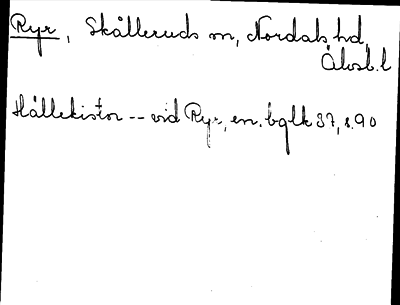 Ryr, Skålleruds sn, Nordals hd,
Älvsb. l
Hällekistor -- vid Ryr, en. bglk 37, s. 90